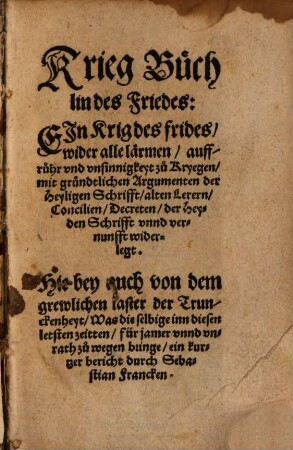 Krieg Büch
lin des Friedes:
EIn Krig des frides/
wider alle lärmen/ auff⸗
rühr vnd vnsinnigkeyt zů Kryegen/
mit gründtlichen Argumenten der
Heyligen Schrifft/ alten Lerern/
Concilien/ Decreten/ der Hey⸗
den Schrifft vnnd ver⸗
nunfft wider⸗
legt.
Hie bey auch von dem
grewlichen laster der Trun⸗
ckenheyt/ Was die selbige inn diesen
letsten zeitten/ für jamer vnnd vn⸗
rath zů wegen bringe/ ein kur⸗
tzer bericht durch Seba⸗
stian Francken.